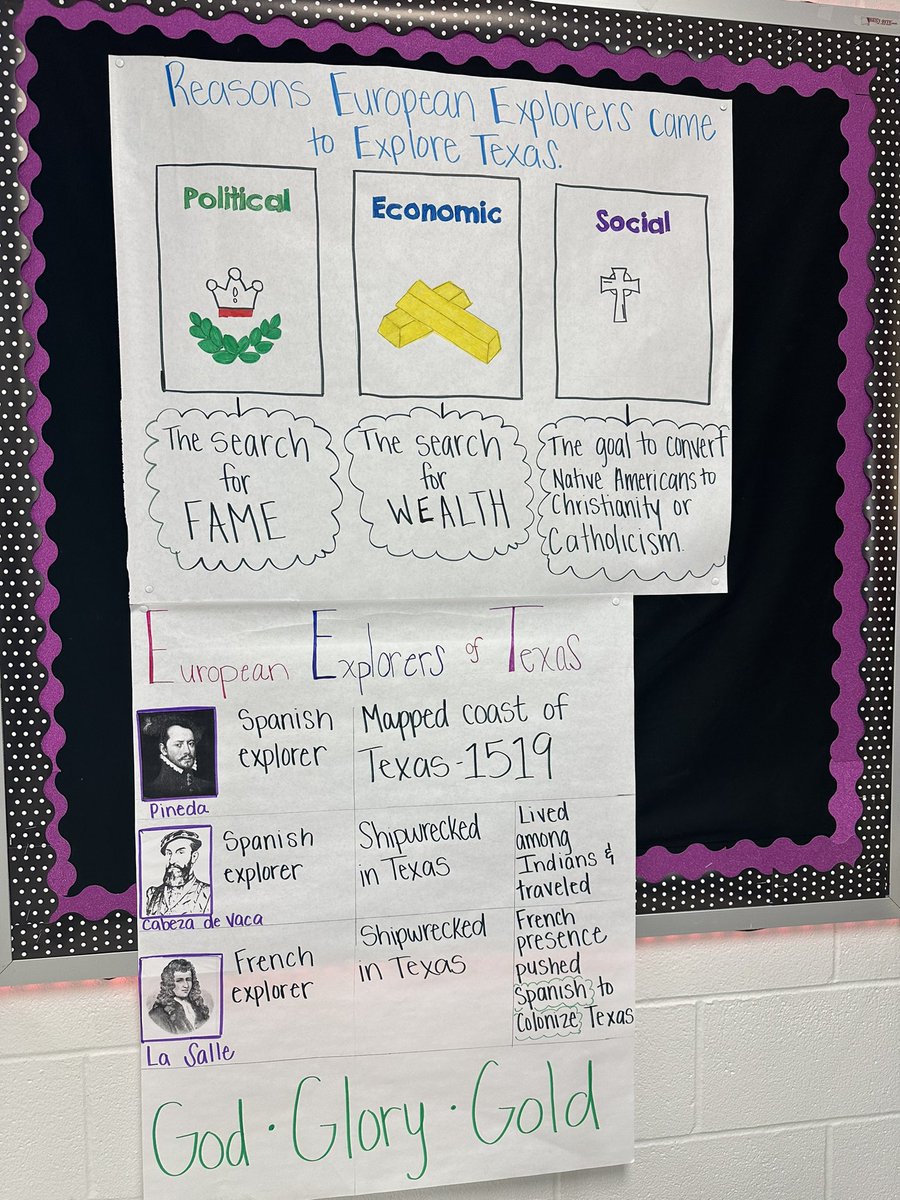 Reasons European Explorers came
to Explore Texas.
Political
The search
for
FAME
Economic
The search
for
WEALTH
Social
The goal to convert
Native Americans to
Christianity or
Catholicism.
European Explorers of Texas
Pineda
Spanish
explorer
Mapped coast of
Texas-1519
Cabeza de Vaca
Spanish
explorer
Shipwrecked
in Texas
Lived
among
Indians &
traveled
La Salle
French
explorer
Shipwrecked
in Texas
French
presence
pushed
Spanish to
Colonize Texas
God · Glory · Gold